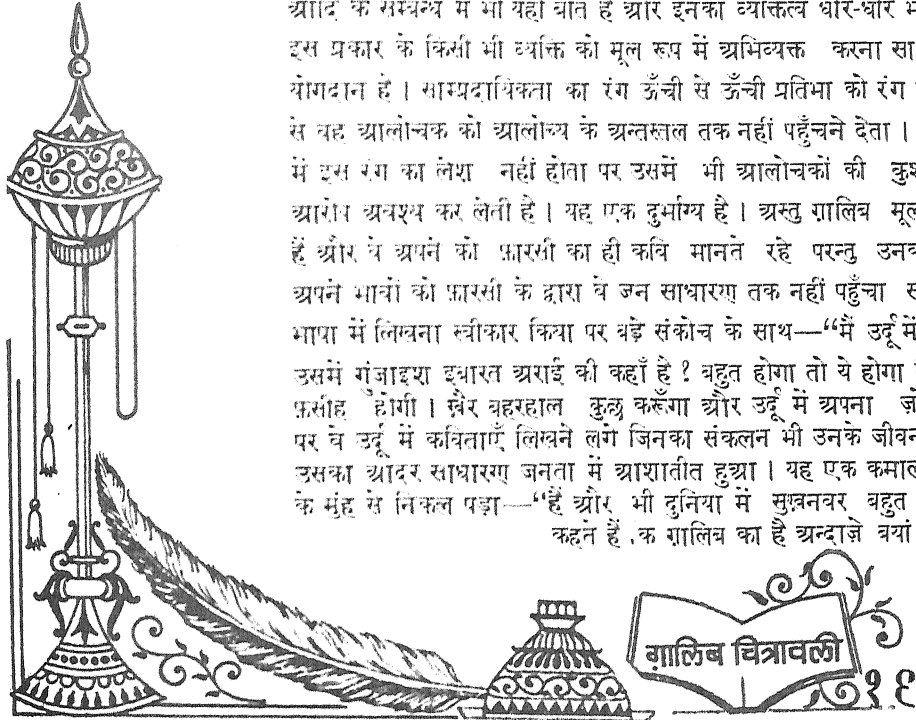 आदि के सम्बन्ध में भी यही बात है और इनका व्यक्तित्व धीर-धीर
इस प्रकार के किसी भी व्यक्ति को मूल रूप में अभिव्यक्त करना सा
योगदान है । साम्प्रदायिकता का रंग ऊँची से ऊँची प्रतिभा को रंग
से वह आलोचक को आलोच्य के अन्तस्तल तक नहीं पहुँचने देता ।
में इस रंग का लेश नहीं होता पर उसमें भी आलोचकों की कुश
आरोप अवश्य कर लेती है । यह एक दुर्भाग्य है । अस्तु ग़ालिब मूल
हैं और वे अपने को फ़ारसी का ही कवि मानते रहे परन्तु उनक
अपने भावों को फ़ारसी के द्वारा वे जन साधारण तक नहीं पहुँचा स
भाषा में लिखना स्वीकार किया पर बड़े संकोच के साथ—“मैं उर्दू में
उसमें गुंजाइश इबारत अराई की कहाँ है ? बहुत होगा तो ये होगा
फ़सीह होगी । ख़ैर बहरहाल कुछ करूँगा और उर्दू में अपना ज़ो
पर वे उर्दू में कविताएँ लिखने लगे जिनका संकलन भी उनके जीवन
उसका आदर साधारण जनता में आशातीत हुआ । यह एक कमाल
के मुंह से निकल पड़ा—“हैं और भी दुनिया में सुख़नवर बहुत
कहते हैं .क ग़ालिब का है अन्दाज़े बयां
ग़ालिब चित्रावली
१९